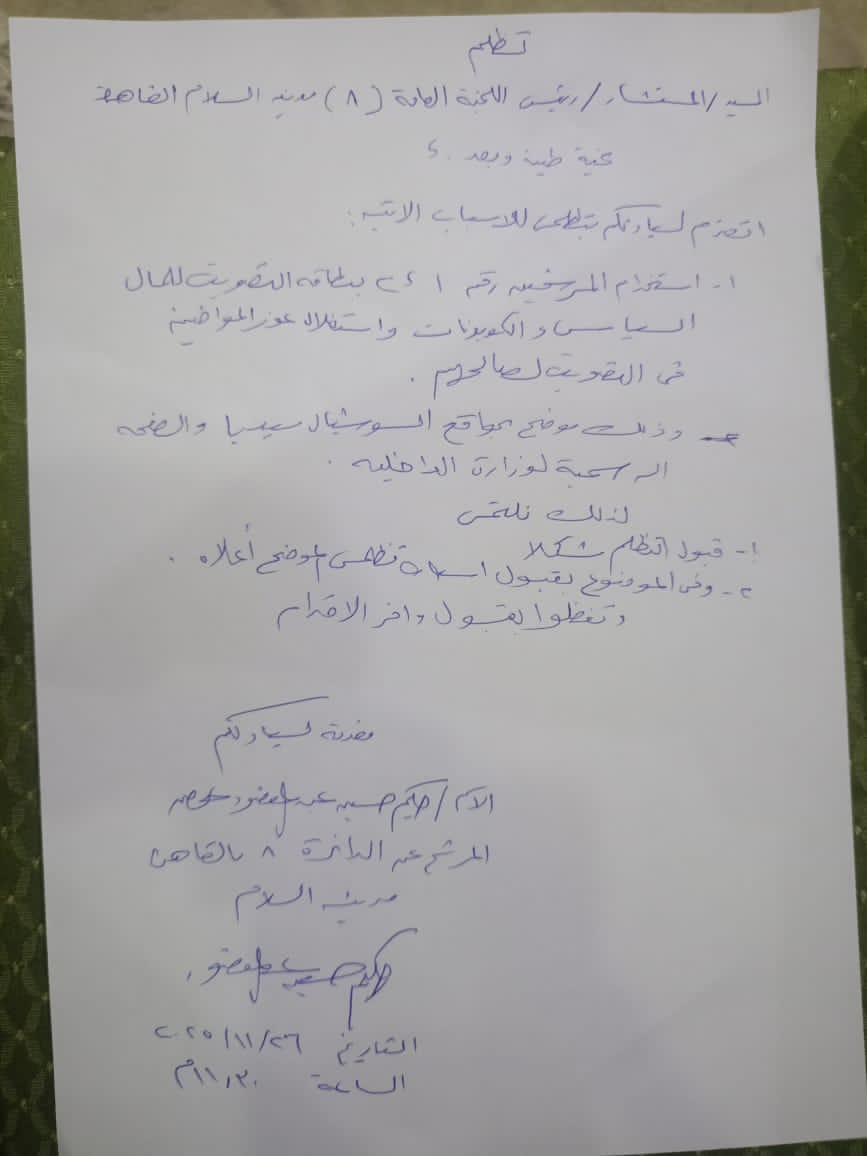 تظلم
السيد/المستشار/رئيس اللجنة العامة (٨) مدينة السلام القاهرة
تحية طيبة وبعد ،،
اتقدم لسيادتكم بتظلمى للاسباب الاتيه:
١- استخدام المرشحين رقم ١ ، ٢ ببطاقه التصويت للمال
السياسى والكوبونات واستغلال عوز المواطنين
فى التصويت لصالحهم .
وذلك موضح بمواقع السوشيال ميديا والصفحه
الرسمية لوزارة الداخليه .
لذلك نلتمس
١- قبول التظلم شكلا
٢- وفى الموضوع بقبول اسباب تظلمى الموضح أعلاه .
وتفظلوا بقبول وافر الاحترام
مقدمة لسيادتكم
الاسم / حكيم حسين عبد الغفور
المرشح عن الدائرة ٨ بالقاهرة
مدينة السلام
حكيم حسين عبد الغفور
التاريخ ٢٠٢٥/١١/٢٦
الساعة ١١,٣٠م